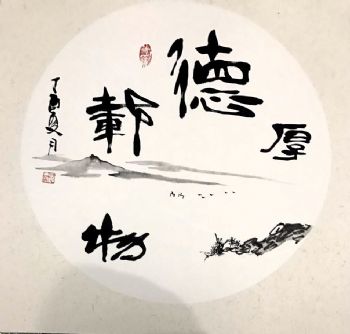 厚德載物
丁酉夏月